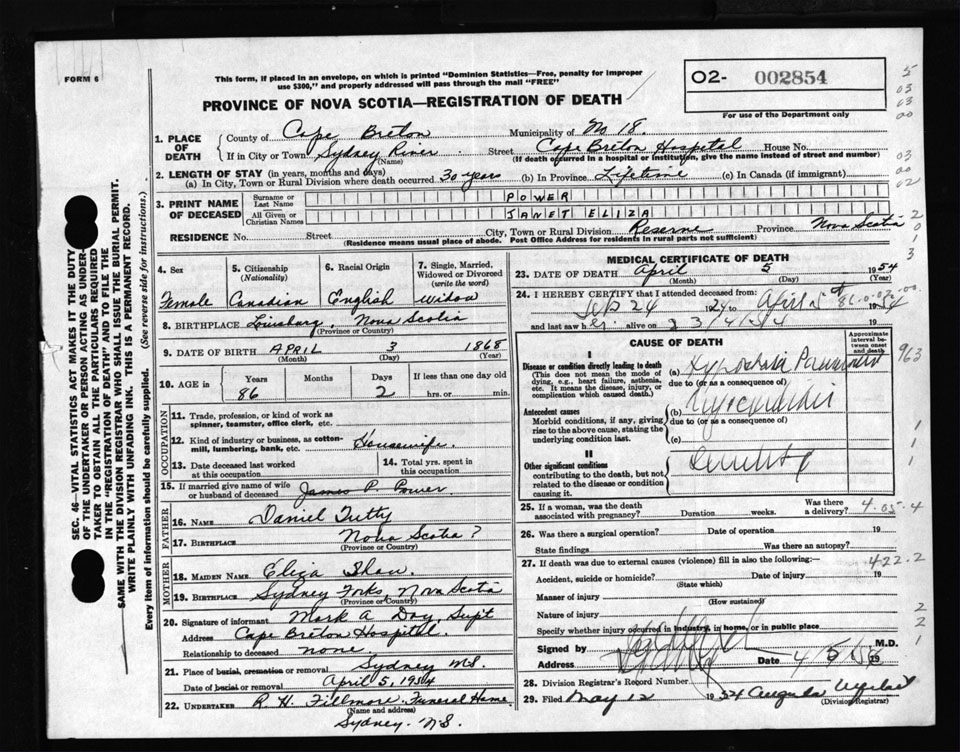 FORM 6
This form, if placed in an envelope, on which is printed "Dominion Statistics—Free, penalty for improper
use $300," and properly addressed will pass through the mail "FREE"
PROVINCE OF NOVA SCOTIA—REGISTRATION OF DEATH
O2- 002854
For use of the Department only
1. PLACE OF DEATH
County of Cape Breton Municipality of No 18.
If in City or Town Sydney River Street Cape Breton Hospital House No.
(Name) (If death occurred in a hospital or institution, give the name instead of street and number)
2. LENGTH OF STAY (in years, months and days)
(a) In City, Town or Rural Division where death occurred 30 years (b) In Province Lifetime (c) In Canada (if immigrant)
3. PRINT NAME OF DECEASED
Surname or Last Name POWER
All Given or Christian Names JANET ELIZA
RESIDENCE No. Street City, Town or Rural Division Reserve Province Nova Scotia
(Residence means usual place of abode. Post Office Address for residents in rural parts not sufficient)
4. Sex
Female
5. Citizenship
(Nationality)
Canadian
6. Racial Origin
English
7. Single, Married, Widowed or Divorced
(write the word)
Widow
8. BIRTHPLACE Louisburg, Nova Scotia
(Province or Country)
9. DATE OF BIRTH APRIL 3 1868
(Month) (Day) (Year)
10. AGE in
Years Months Days If less than one day old
86 2 hrs. or min.
OCCUPATION
11. Trade, profession, or kind of work as
spinner, teamster, office clerk, etc.
12. Kind of industry or business, as cotton-
mill, lumbering, bank, etc. Housewife.
13. Date deceased last worked
at this occupation
14. Total yrs. spent in
this occupation
15. If married give name of wife
or husband of deceased James P Power.
FATHER
16. NAME Daniel Tutty
17. BIRTHPLACE Nova Scotia?
(Province or Country)
MOTHER
18. MAIDEN NAME Eliza Shaw
19. BIRTHPLACE Sydney Forks, Nova Scotia
(Province or Country)
20. Signature of informant Mark A Day, Supt
Address Cape Breton Hospital.
Relationship to deceased none
21. Place of burial, cremation or removal Sydney N.S.
Date of burial or removal April 5, 1954
22. UNDERTAKER R. H. Fillmore Funeral Home
(Name and address)
Sydney. N.S.
MEDICAL CERTIFICATE OF DEATH
23. DATE OF DEATH April 5 1954
(Month) (Day) (Year)
24. I HEREBY CERTIFY that I attended deceased from:
Sep 24 1924 to April 5 1954
and last saw her alive on 3/4/54 19
CAUSE OF DEATH
Approximate interval between onset and death
I
Disease or condition directly leading to death
(This does not mean the mode of
dying, e.g., heart failure, asthenia,
etc. It means the disease, injury, or
complication which caused death.)
(a) Hypostasis Pneumonia
due to (or as a consequence of)
Antecedent causes
Morbid conditions, if any, giving
rise to the above cause, stating the
underlying condition last.
(b) Myocarditis
due to (or as a consequence of)
(c)
II
Other significant conditions
contributing to the death, but not
related to the disease or condition
causing it.
Senility
25. If a woman, was the death
associated with pregnancy? Duration weeks. Was there a delivery?
26. Was there a surgical operation? Date of operation 19
State findings Was there an autopsy?
27. If death was due to external causes (violence) fill in also the following:
Accident, suicide or homicide? Date of injury 19
(State which)
Manner of injury
(How sustained)
Nature of injury
Specify whether injury occurred in industry, in home, or in public place
Signed by M.D.
Address Date 4/5/54 19
28. Division Registrar's Record Number
29. Filed May 12 1954
(Division Registrar)
963
4-05-4
422.2
SEC. 46—VITAL STATISTICS ACT MAKES IT THE DUTY
OF THE UNDERTAKER OR PERSON ACTING AS UNDER-
TAKER TO OBTAIN ALL THE PARTICULARS REQUIRED
IN THE "REGISTRATION OF DEATH" AND TO FILE THE
SAME WITH THE DIVISION REGISTRAR WHO SHALL ISSUE THE BURIAL PERMIT.
WRITE PLAINLY WITH UNFADING INK. THIS IS A PERMANENT RECORD.
Every item of information should be carefully supplied. (See reverse side for instructions.)